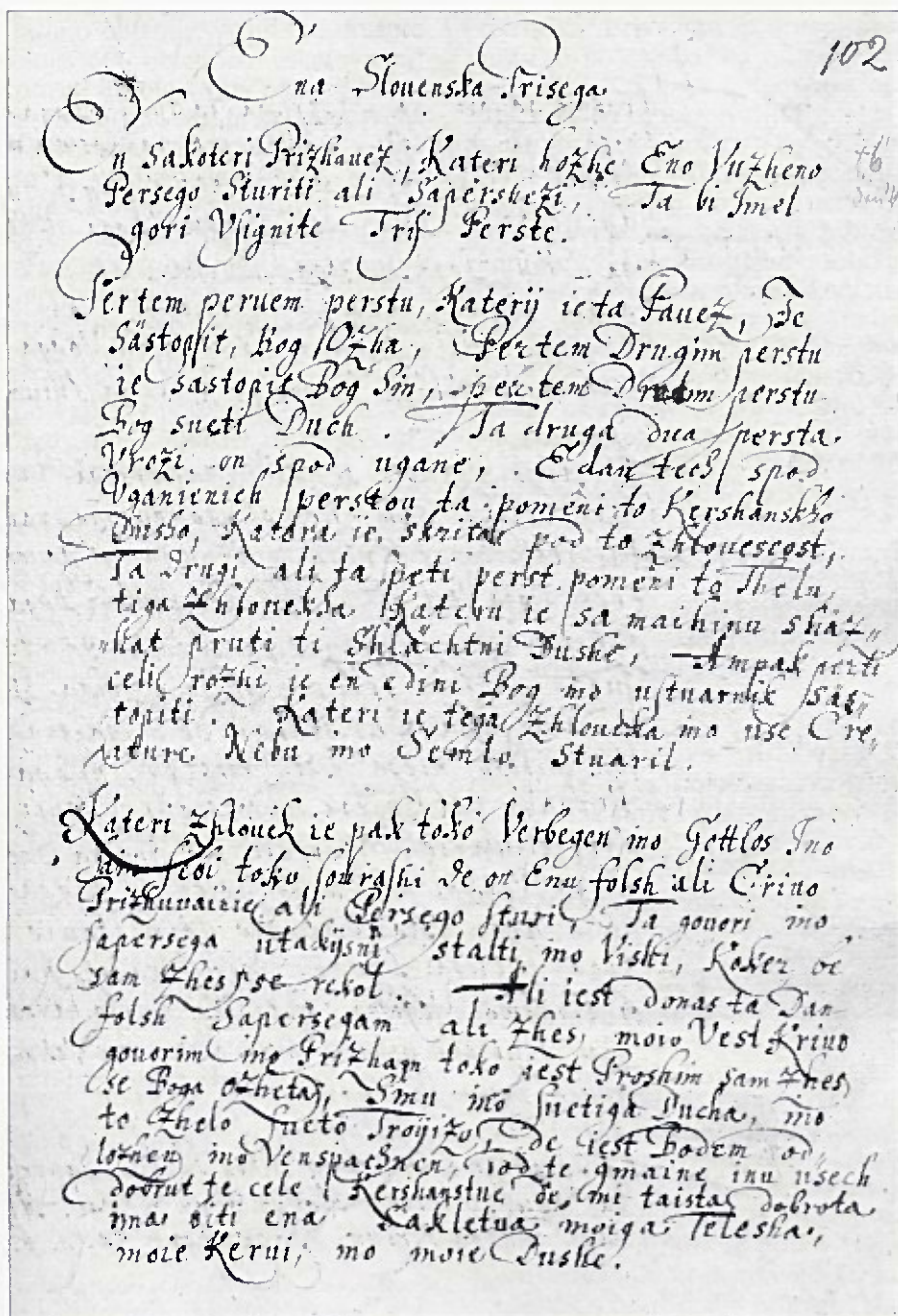 102
Ena Slouenska Prisega.
En Sakoteri Prizhauez, Kateri hozhe Eno Vuzheno
Persego Sturiti ali Sapershezi, Ta bi Imel
gori Vsignite Trij Perste.
Per tem peruem perstu, Katerij ie ta Pauez, Je
Sästopit, Bog Ozha, Per tem Drugim perstu
ie sastopit Bog Sin, per tem perstu
Bog sueti Duch. Ta druga dua persta
Vrozi on spod ugane, Edan tech spod
Vganienich perstou ta pomeni to Kershansko
Dusho, Katora ie skrita pod to
Ta drugi ali ta peti perst pomeni to Thelu
tiga Zhloueka Kateru ie sa maihinu shaz-
kat pruti ti Shlächtni Dushe, Ampak
celi rozhi ie en Edini Bog ino ustuarnik sas-
topiti. Kateri ie tega Zhloueka ino use Cre-
ature Nebu ino Semlo Stuaril.
Kateri Zhlouek ie pak toko Verbegen ino Gottlos Ino
sebi toku sourashi de on Enu folsh ali Criuo
ali Persego sturi, Ta gouori ino
sapersega utakijsni stalti ino Vishi, Koker be
sam zhes se rekol. Ali iest donas ta Dan
folsh Sapersegam ali zhes moio Vest Kriuo
gouorim ino Prizham toko iest Proshim sam zhes
se Boga Ozheta, Sinu ino suetiga Ducha, ino
to Zhelo sueto Troijizo, De iest Bodem od-
lozhen ino od te gmaine inu usech
dobrut te cele Kershanstue de mi taista dobrota
ima biti ena Sakletua moiga Telesha,
moie Kerui, ino moie Dushe.